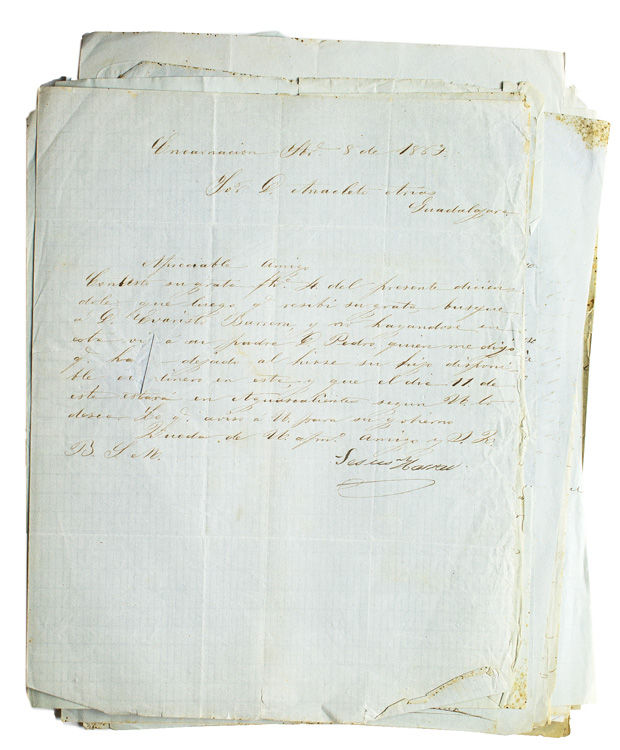 Encarnacion 8 de 1863.
Sor. D. Anacleto Arias
Guadalajara
Apreciable Amigo
Contesto su grata fha. 4 del presente dicien
dole que luego q. recibi su grata busque
á D. Evaristo Barrera, y no hayandose en
esta vi a su padre D. Pedro, quien me dijo
q. ha dejado al hirse su hijo disponi
ble en esta, y que el dia 11 de
este estará en Aguascalientes segun U. lo
desea. Lo q. aviso á U. para su gobierno
Queda de U. afmo. amigo y S. S.
B. S. M.
Jesus